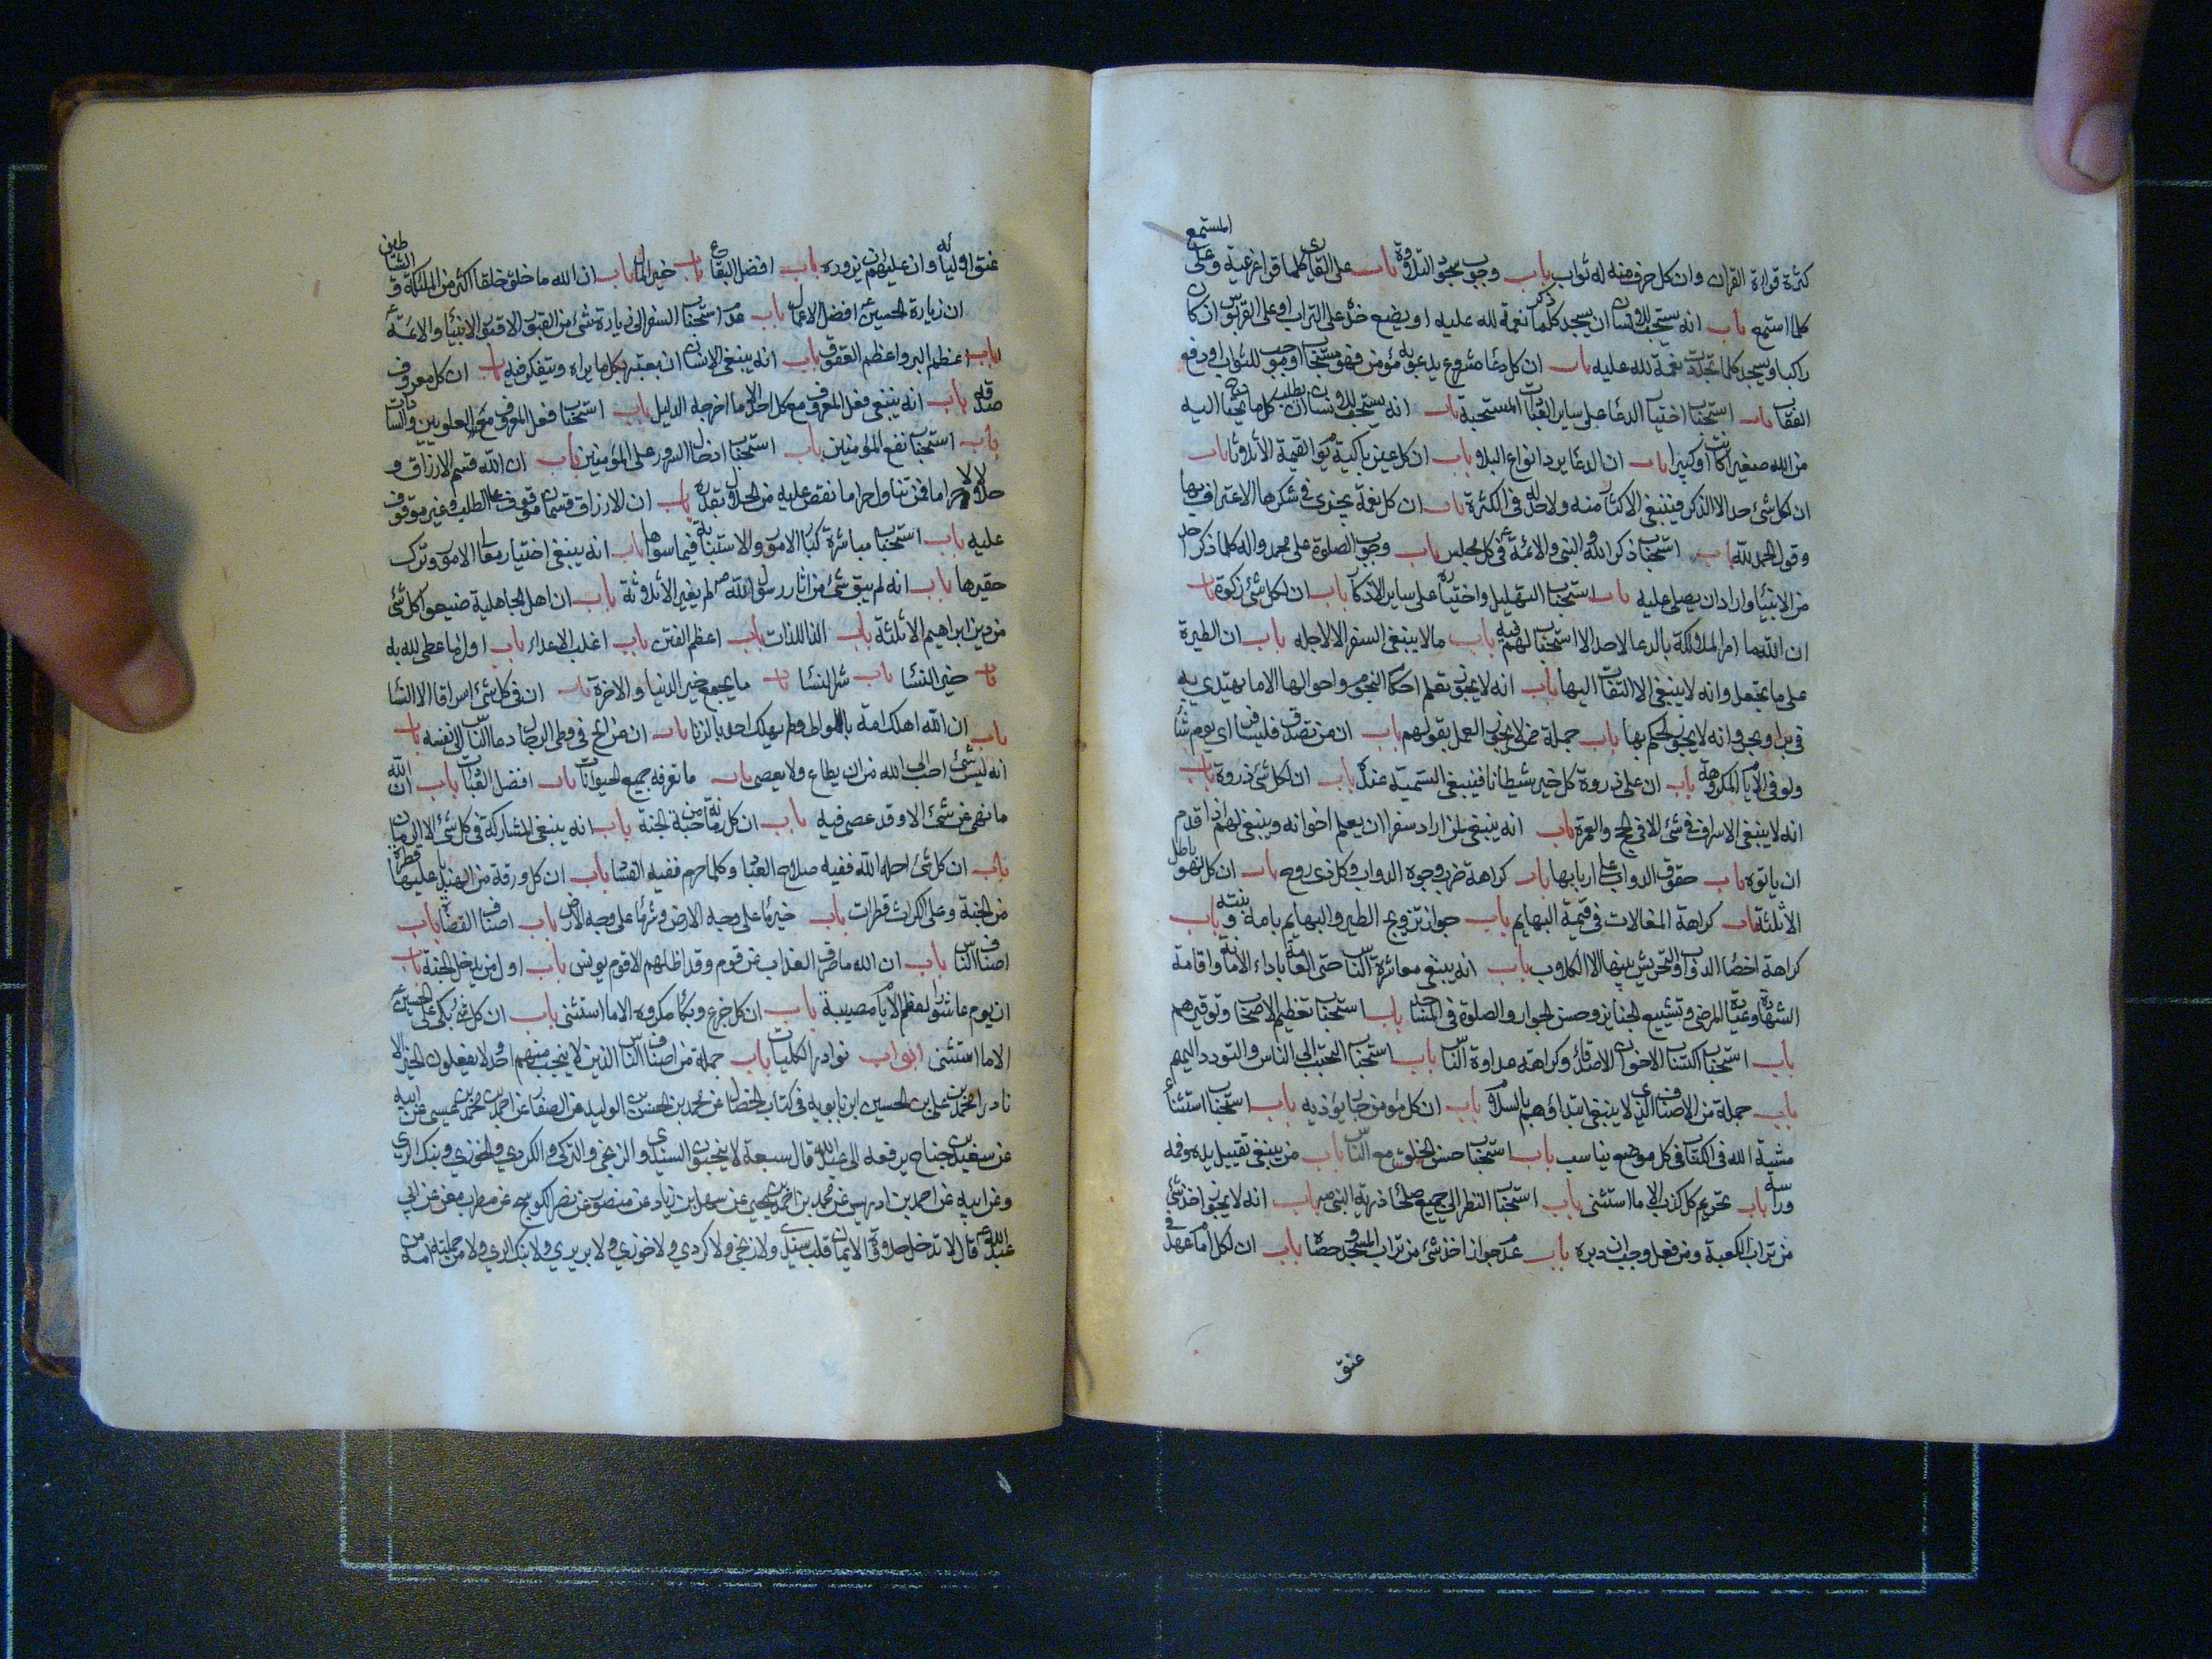 المستمع
كثرة قراءة القران وان كل حرف منه له ثواب باب وجوب سجود التلاوة باب على القاري كلما قرا عزيمة وعلى
كلما استمع باب انه يستحب للانسان ان يسجد كلما ذكر نعمة لله عليه او يضع خده على التراب او على القربوس ان كان
راكبا ويسجد كلما تجددت نعمة لله عليه باب ان كل دعاء مشروع يدعو به مؤمن فهو مستجاب او موجب للثواب او دفع
العقاب باب استحباب اختيار الدعا على ساير العبادات المستحبة باب انه يستحب للانسان ان يطلب كل ما يحتاج اليه
من الله صغيرا كانت او كبيرا باب ان الدعا يرد انواع البلاء باب ان كل عين باكية يوم القيمة الا ثلاثا باب
ان لكل شئ حدا الا الذكر فينبغي الاكثار منه ولا حد له في الكثرة باب ان كل نعمة يجزى في شكرها الاعتراف بها
وقول الحمد لله باب استحباب ذكر الله والنبي والائمة ع في كل مجلس باب وجوب الصلوة على محمد واله كلما ذكر احد
من الانبياء واراد ان يصلي عليه باب استحباب التهليل واختياره على ساير الاذكار باب ان لكل شئ زكوة باب
ان الله ما امر الملائكة بالدعا لاحد الا استجاب لهم فيه باب ما لا ينبغي السفر الا لاجله باب ان الطيرة
على ما تجعل وانه لا ينبغي الالتفات اليها باب انه لا يجوز تعلم احكام النجوم واحوالها الا ما يهتدي به
في بر او بحر وانه لا يجوز الحكم بها باب جملة ممن لا يجوز العمل بقولهم باب ان من تصدق فليسافر اي يوم شاء
ولو في الايام المكروهة باب ان على ذروة كل خير شيطانا فينبغي التسمية عنده باب ان لكل شئ ذروة باب
انه لا ينبغي الاسراف في شئ الا في الحج والعمرة باب انه ينبغي لمن اراد سفرا ان يعلم اخوانه وينبغي لهم اذا قدم
ان ياتوه باب حقوق الدواب على اربابها باب كراهة ضرب وجوه الدواب وكل ذي روح باب ان كل لهو باطل
الا ثلثة باب كراهة المغالات في قيمة البهايم باب جواز تزويج الطير والبهايم بامه وبنته باب
كراهة اخصاء الدواب والتحريش بينها الا الكلاب باب انه ينبغي معاشرة الناس حتى العامة باداء الامانة واقامة
الشهادة وعيادة المرضى وتشييع الجنايز وحسن الجوار والصلوة في المساجد باب استحباب تعظيم الاصحاب وتوقيرهم
باب استحباب اكتساب الاخوان الاصدقاء وكراهة عداوة الناس باب استحباب التحبب الى الناس والتودد اليهم
باب جملة من الاصناف الذي لا ينبغي ابتداؤهم بالسلام باب ان كل مؤمن جار يؤذيه باب استحباب استثناء
مشية الله في الكتاب في كل موضع يناسب باب استحباب حسن الخلق مع الناس باب من ينبغي تقبيل يده وفمه
وراسه باب تحريم كل كذب الا ما استثنى باب استحباب النظر الى جميع صلحاء ذرية النبي ص باب انه لا يجوز اخذ شئ
من تراب الكعبة ومن فعل وجب ان يرده باب عدم جواز اخذ شئ من تراب المسجد وحصاه باب ان لكل امام عهدا في
عنق
عنق اوليائه وان عليهم ان يزوره باب افضل البقاع باب خير المال باب ان الله ما خلق خلقا اكثر من الملئكة والشياطين
ان زيارة الحسين ع افضل الاعمال باب عدم استحباب السفر الى زيارة شئ من القبور الا قبور الانبياء والائمة ع
باب اعظم البر واعظم العقوق باب انه ينبغي للانسان ان يعتبر بكل ما يراه ويتفكر فيه باب ان كل معروف
صدقة باب انه ينبغي فعل المعروف مع كل احد الا ما اخرجه الدليل باب استحباب فعل المعروف مع العلويين والسادات
باب استحباب نفع المؤمنين باب استحباب ادخال السرور على المؤمنين باب ان الله قسم الارزاق و
حلالا لا حراما فمن تناول حراما نقص عليه من الحلال بقدره باب ان الارزاق قسمان موقوف على الطلب وغير موقوف
عليه باب استحباب مباشرة كبار الامور والاستنابة فيما سواها باب انه ينبغي اختيار معالي الامور وترك
حقيرها باب انه لم يبق شئ من اثار رسول الله ص لم يغير الا ثلاثة باب ان اهل الجاهلية ضيعوا كل شئ
من دين ابراهيم الا ثلثة باب الذ اللذات باب اعظم الفتن باب اغلب الاعداء باب اول ما عصي الله به
باب خير النساء باب شر النساء باب ما يجمع خير الدنيا والاخرة باب ان في كل شئ اسرافا الا النساء
باب ان الله اهلك امة باللواط ولم يهلك احدا بالزنا باب ان من الح في وطي الرجال دعا الناس الى نفسه باب
انه ليس شئ احب الى الله من ان يطاع ولا يعصى باب ما تعرفه جميع الحيوانات باب افضل العبادات باب ان الله
ما نهى عن شئ الا وقد عصي فيه باب ان كل رمانة حبة من الجنة باب انه ينبغي المشاركة في كل شئ الا الرمان
باب ان كل شئ احله الله ففيه صلاح العباد وكلما حرم ففيه الفساد باب ان كل ورقة من الهندبا عليها قطرة
من الجنة وعلى الكراث قطرات باب خير ماء على وجه الارض وشر ماء على وجه الارض باب اصناف القضاة باب
اصناف الناس باب ان الله ما صرف العذاب عن قوم وقد اظلهم الا قوم يونس باب اول من يدخل الجنة باب
ان يوم عاشورا اعظم الايام مصيبة باب ان كل جزع وبكاء مكروه الا ما استثنى باب ان كل شئ بكى على الحسين ع
الا ما استثنى ابواب نوادر الكليات باب جملة من اصناف الناس الذين لا ينجب منهم احد ولا يفعلون الخير الا
نادرا محمد بن علي بن الحسين ابن بابويه في كتاب الخصال عن محمد بن الحسن بن الوليد عن الصفار عن احمد بن محمد بن عيسى عن ابيه
عن سعيد بن جناح يرفعه الى ابي عبد الله ع قال سبعة لا ينجبون السندي والزنجي والتركي والكردي والخوزي ونبك الري
وعن ابيه عن احمد بن ادريس عن محمد بن احمد بن يحيى عن سهل بن زياد عن منصور عن نصر الكوسج عن مطرف معن عن ابي
عبد الله ع قال لا تدخل حلاوة الايمان قلب سندي ولا زنجي ولا كردي ولا خوزي ولا بربري ولا نبك الري ولا من حملته امه من